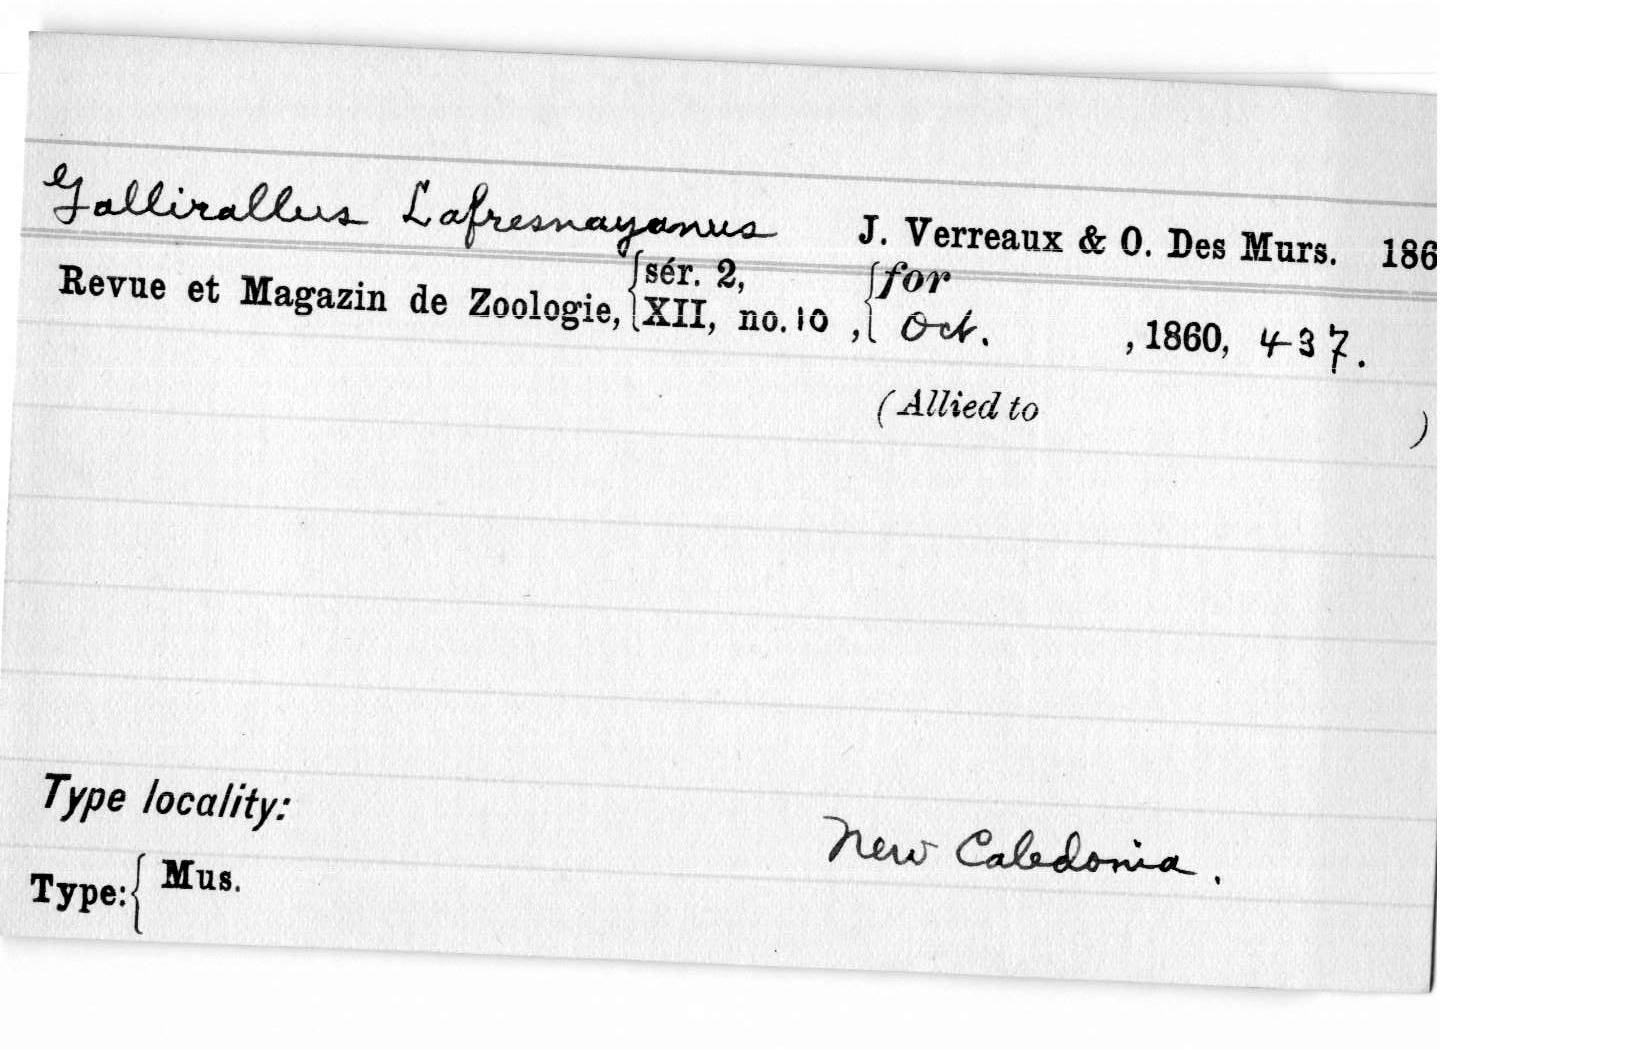 Gallirallus Lafresnayanus J. Verreaux & O. Des Murs. 186
Revue et Magazin de Zoologie, {sér. 2, XII, no. 10 ,{for Oct. , 1860, 437.
(Allied to )
Type locality:
New Caledonia.
Type:{ Mus.